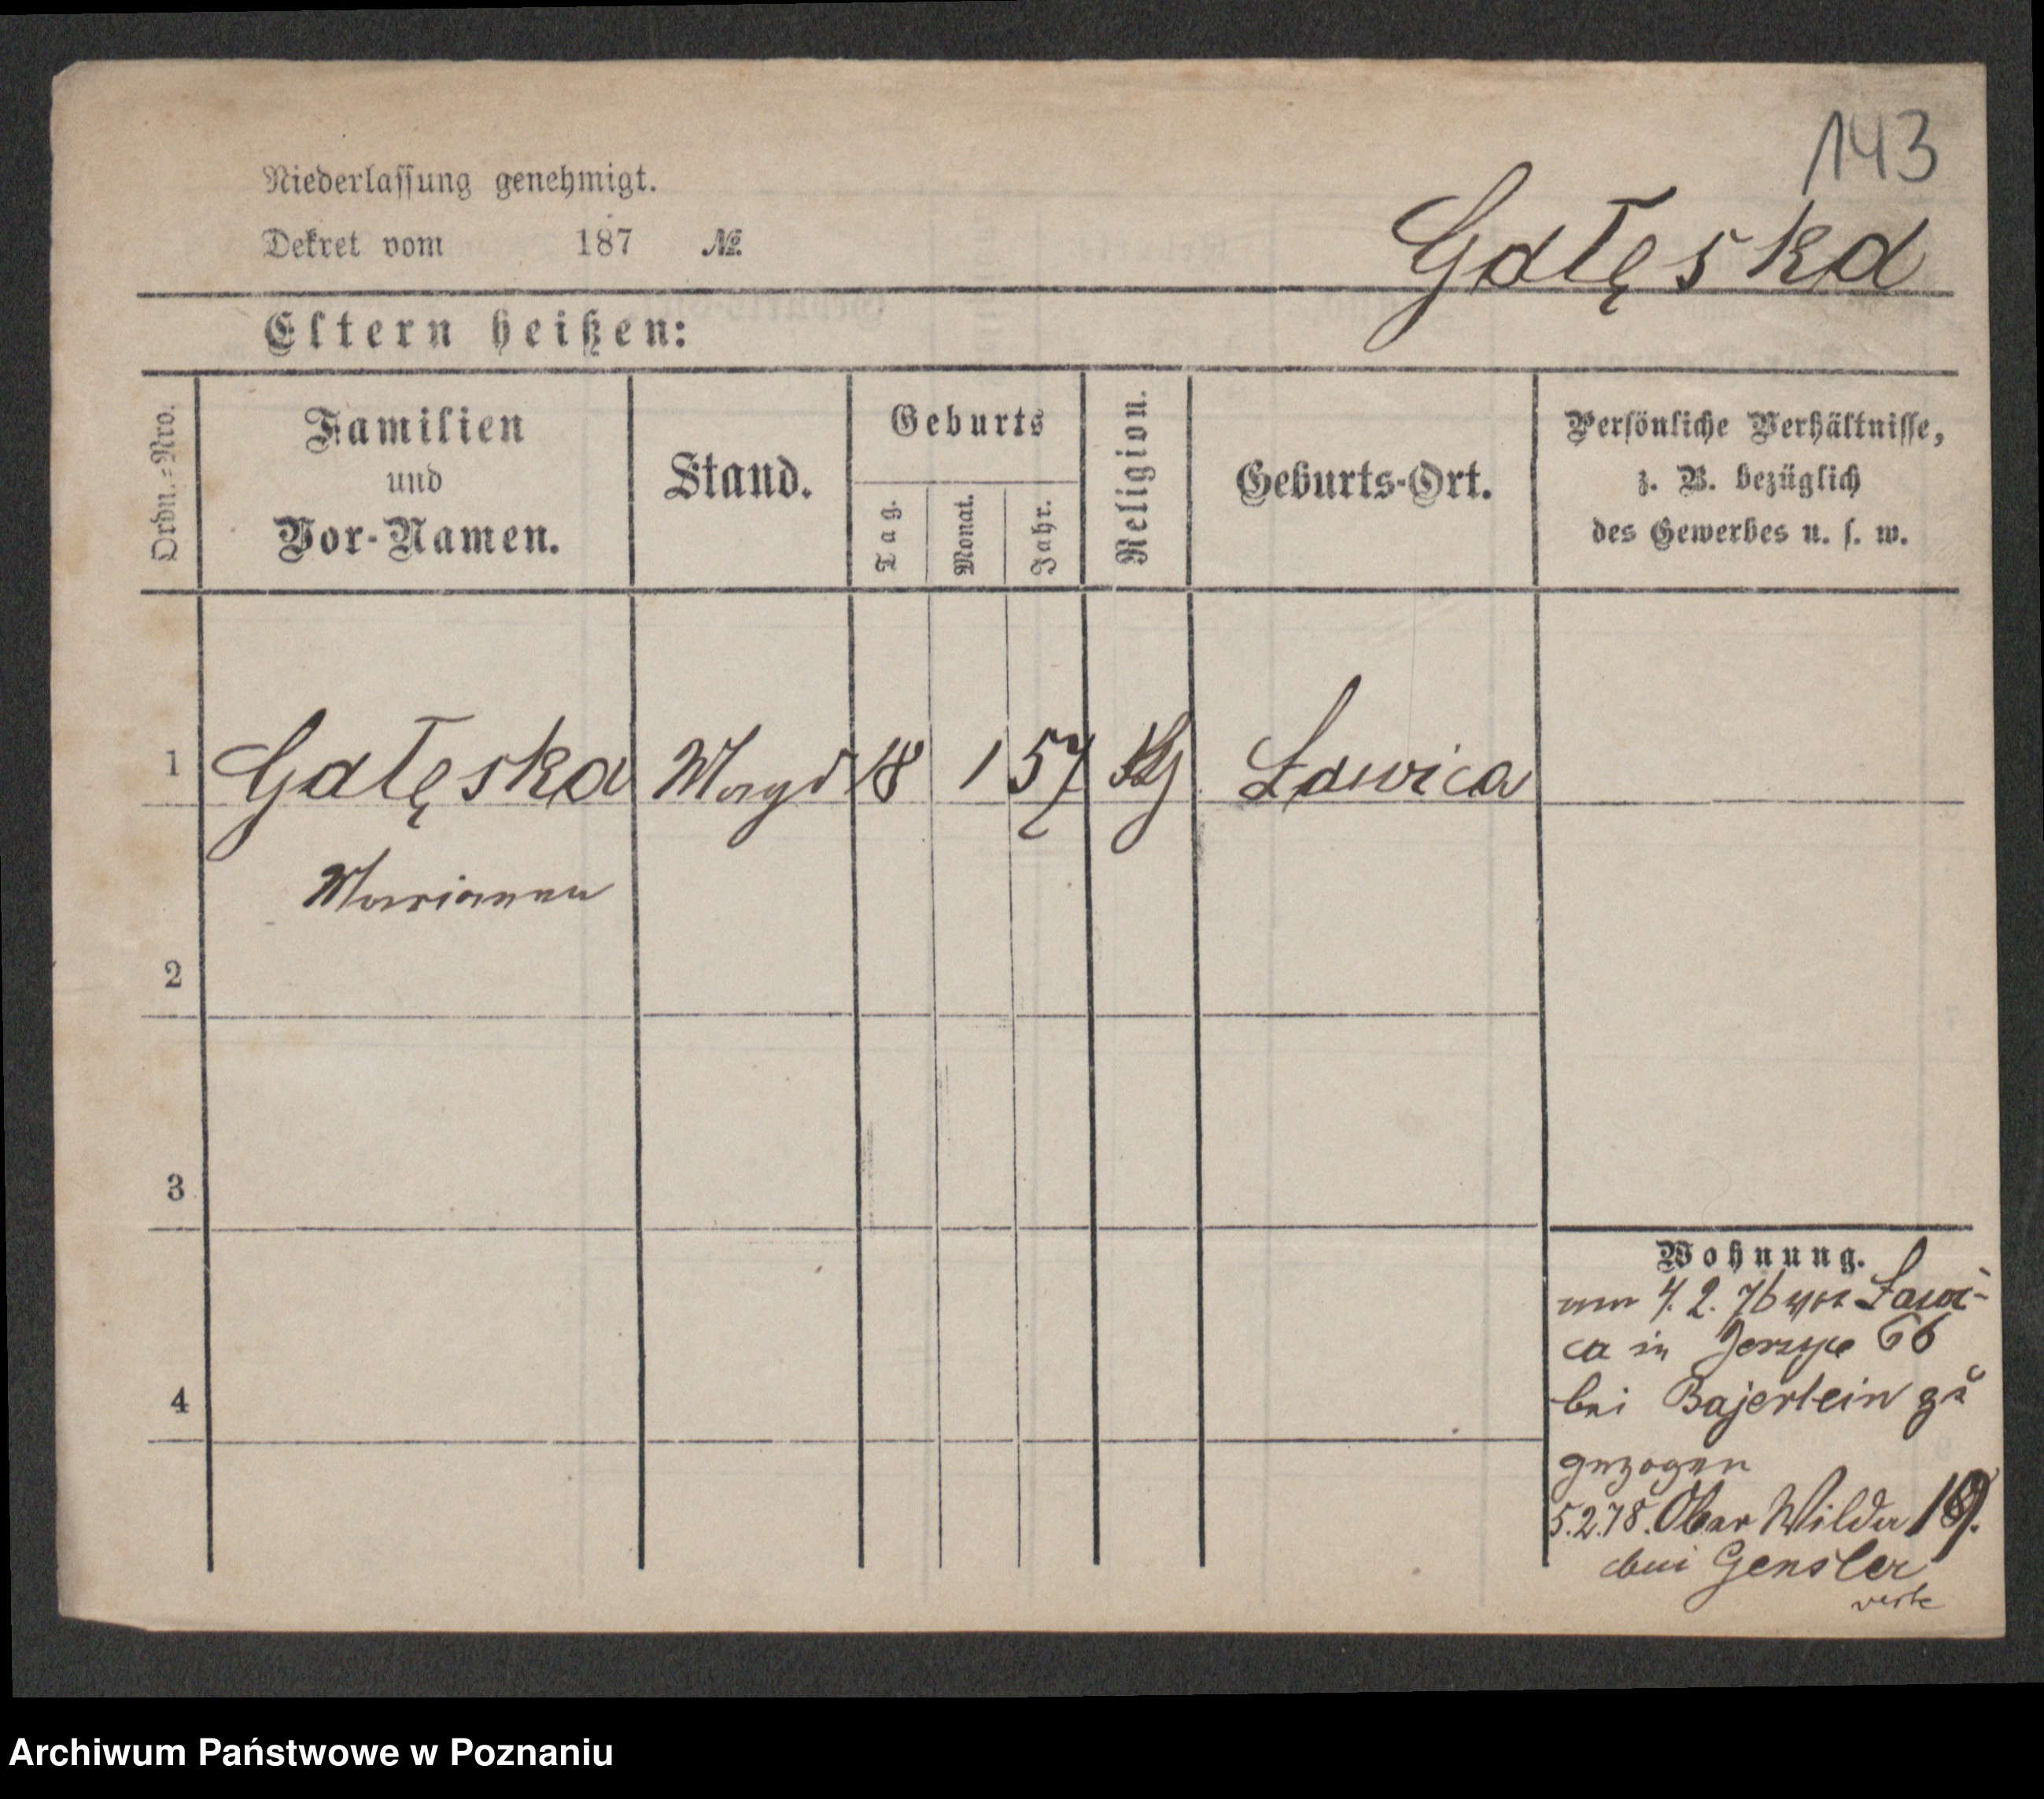 143
Niederlassung genehmigt.
Dekret vom 187 №
Gałęska
Eltern heißen:
Ordn.-Nro.
Familien
und
Vor-Namen.
Stand.
Geburts
Tag.
Monat.
Jahr.
Religion.
Geburts-Ort.
Persönliche Verhältnisse,
z. B. bezüglich
des Gewerbes u. s. w.
1 Gałęska Magd 18 1 57 Kg Ławica
Marianna
2
3
4
Wohnung.
am 4. 2. 76 von Ławi-
ca in Jerzyce 66
bei Bajerlein zu
gezogen
5.2.78. Ober Wilda 19.
bei Gensler
verte
Archiwum Państwowe w Poznaniu